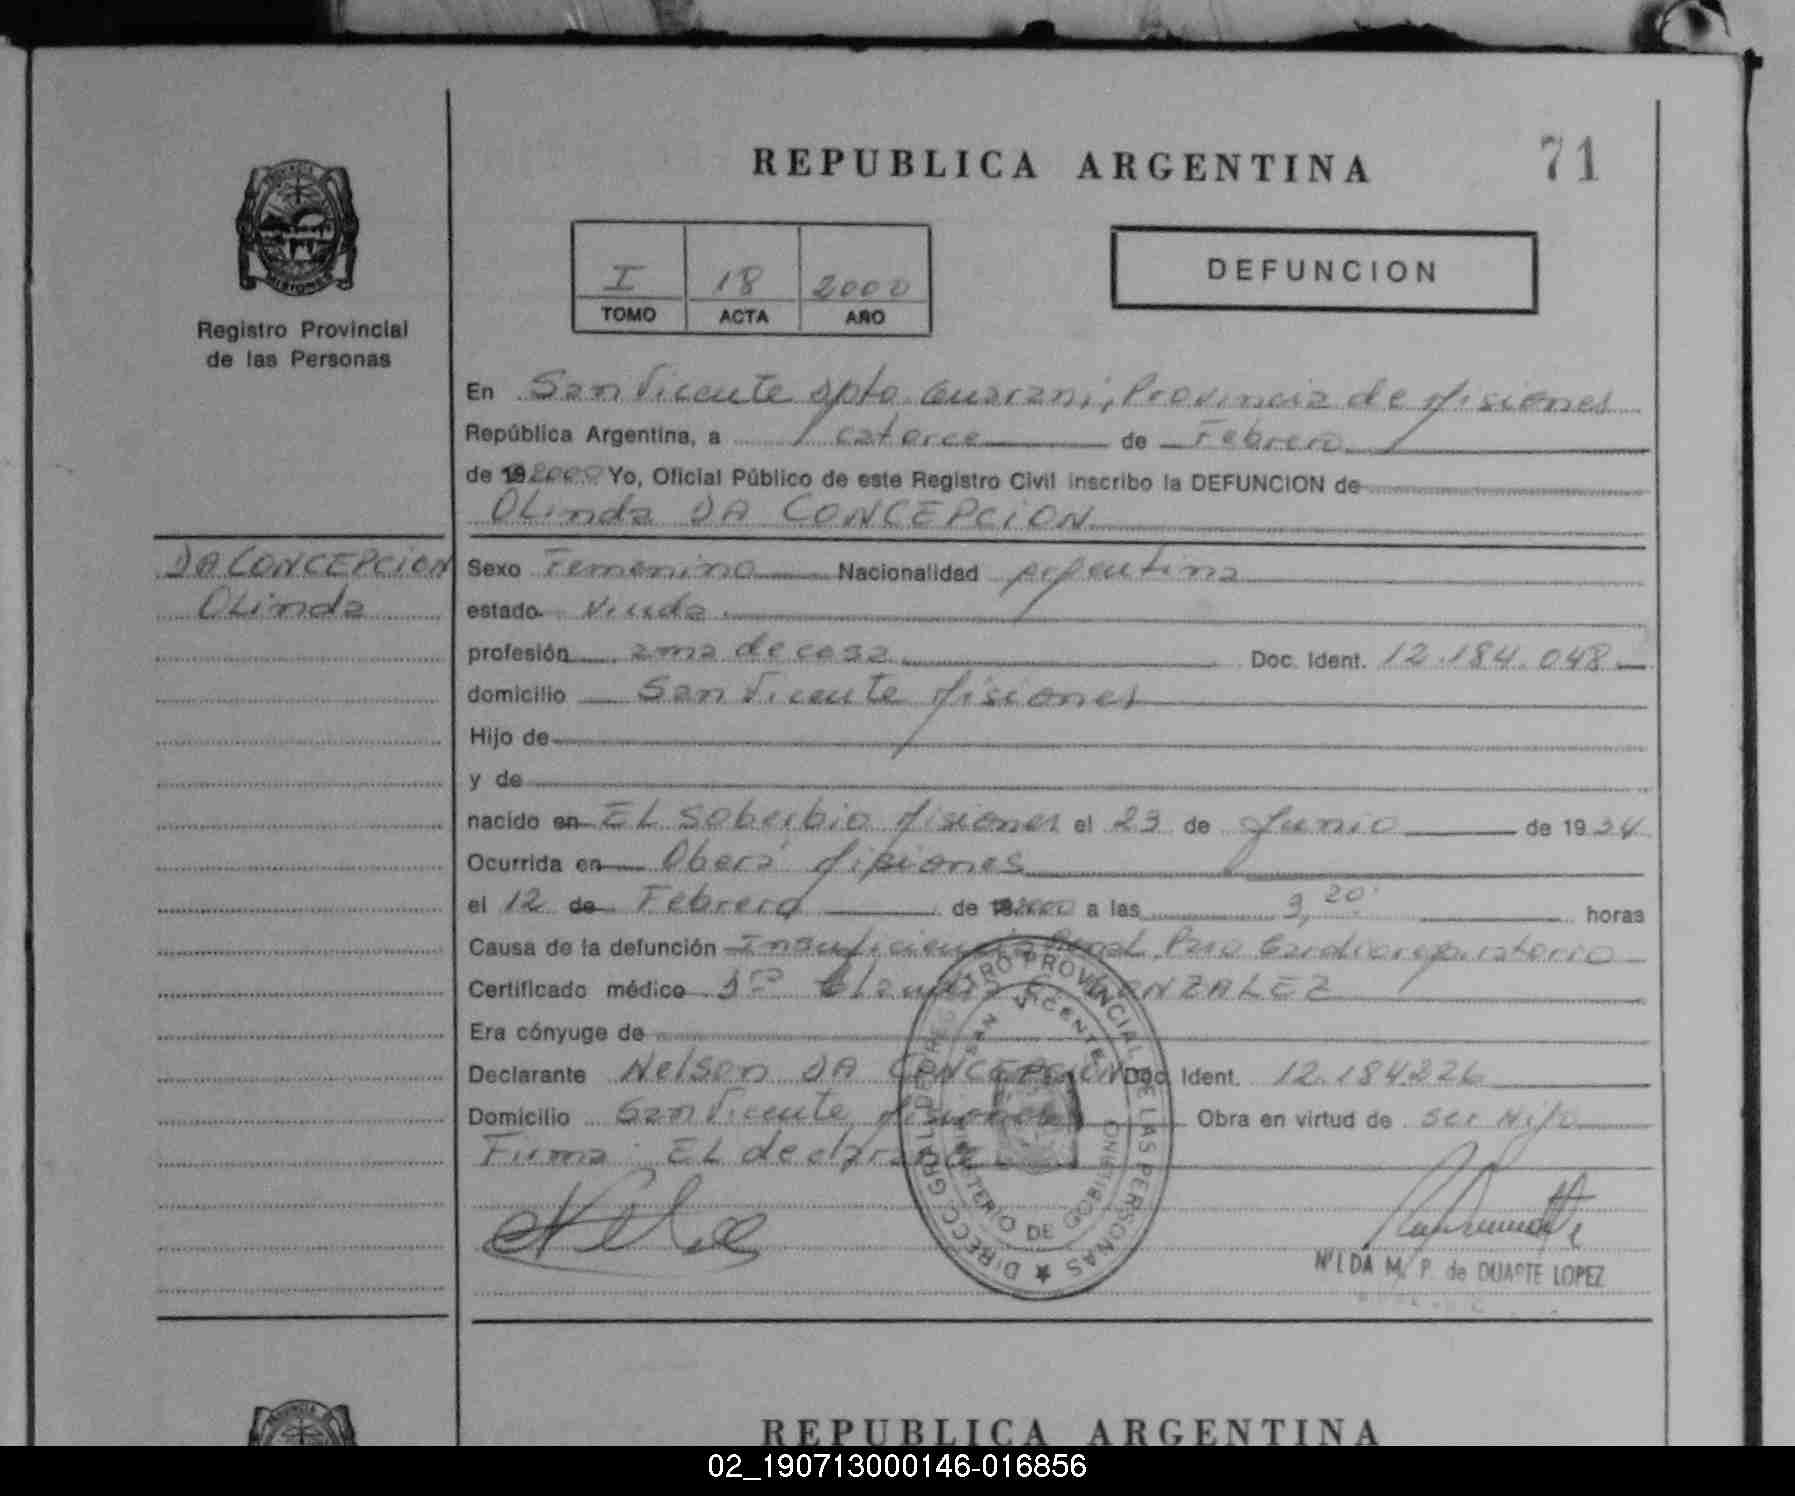 REPUBLICA ARGENTINA
71
PROVINCIA
MISIONES
Registro Provincial
de las Personas
I 18 2000
TOMO ACTA AÑO
DEFUNCION
En San Vicente Dpto Guarani, Provincia de Misiones
República Argentina, a catorce de Febrero
de 192000 Yo, Oficial Público de este Registro Civil inscribo la DEFUNCION de
OLinda DA CONCEPCION
DA CONCEPCION
OLinda
Sexo Femenino Nacionalidad Argentina
estado Viuda
profesión ama de casa Doc. Ident. 12.184.048
domicilio San Vicente Misiones
Hijo de
y de
nacido en EL Soberbio Misiones el 23 de Junio de 1934
Ocurrida en Oberá Misiones
el 12 de Febrero de 2000 a las 9,20 horas
Causa de la defunción Insuficiencia Renal Paro Cardiorespiratorio
Certificado médico GONZALEZ
Era cónyuge de
Declarante Nelson DA CONCEPCION Doc. Ident. 12.184226
Domicilio San Vicente Misiones Obra en virtud de ser Hijo
Firma: EL declarante
DIRECC. GRAL. DEL REGISTRO PROVINCIAL DE LAS PERSONAS
SAN VICENTE
MINISTERIO DE GOBIERNO
NILDA M. P. de DUARTE LOPEZ
REPUBLICA ARGENTINA
02_190713000146-016856